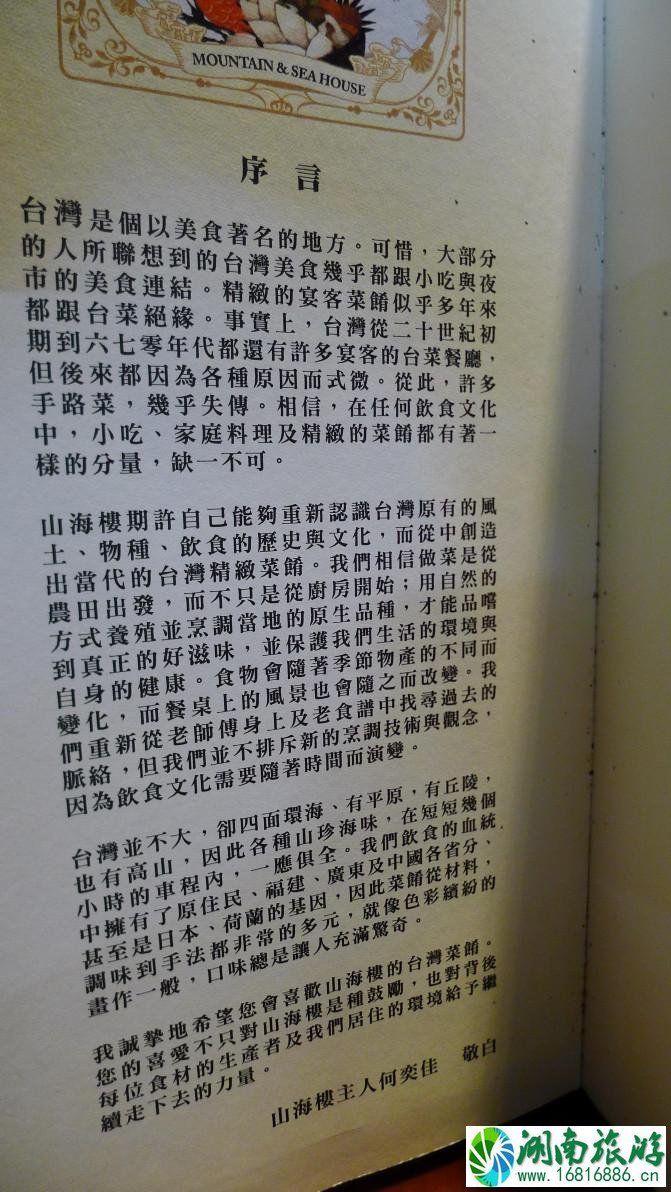 MOUNTAIN & SEA HOUSE
序言
台灣是個以美食著名的地方。可惜，大部分
的人所聯想到的台灣美食幾乎都跟小吃與夜
市的美食連結。精緻的宴客菜餚似乎多年來
都跟台菜絕緣。事實上，台灣從二十世紀初
期到六七零年代都還有許多宴客的台菜餐廳，
但後來都因為各種原因而式微。從此，許多
手路菜，幾乎失傳。相信，在任何飲食文化
中，小吃、家庭料理及精緻的菜餚都有著一
樣的分量，缺一不可。
山海樓期許自己能夠重新認識台灣原有的風
土、物種、飲食的歷史與文化，而從中創造
出當代的台灣精緻菜餚。我們相信做菜是從
農田出發，而不只是從廚房開始；用自然的
方式養殖並烹調當地的原生品種，才能品嚐
到真正的好滋味，並保護我們生活的環境與
自身的健康。食物會隨著季節物產的不同而
變化，而餐桌上的風景也會隨之而改變。我
們重新從老師傅身上及老食譜中找尋過去的
脈絡，但我們並不排斥新的烹調技術與觀念，
因為飲食文化需要隨著時間而演變。
台灣並不大，卻四面環海、有平原，有丘陵，
也有高山，因此各種山珍海味，在短短幾個
小時的車程內，一應俱全。我們飲食的血統
中擁有了原住民、福建、廣東及中國各省分、
甚至是日本、荷蘭的基因，因此菜餚從材料，
調味到手法都非常的多元，就像色彩繽紛的
畫作一般，口味總是讓人充滿驚奇。
我誠摯地希望您會喜歡山海樓的台灣菜餚。
您的喜愛不只對山海樓是種鼓勵，也對背後
每位食材的生產者及我們居住的環境給予繼
續走下去的力量。
山海樓主人何奕佳 敬白
湖南旅游
www.16816886.cn